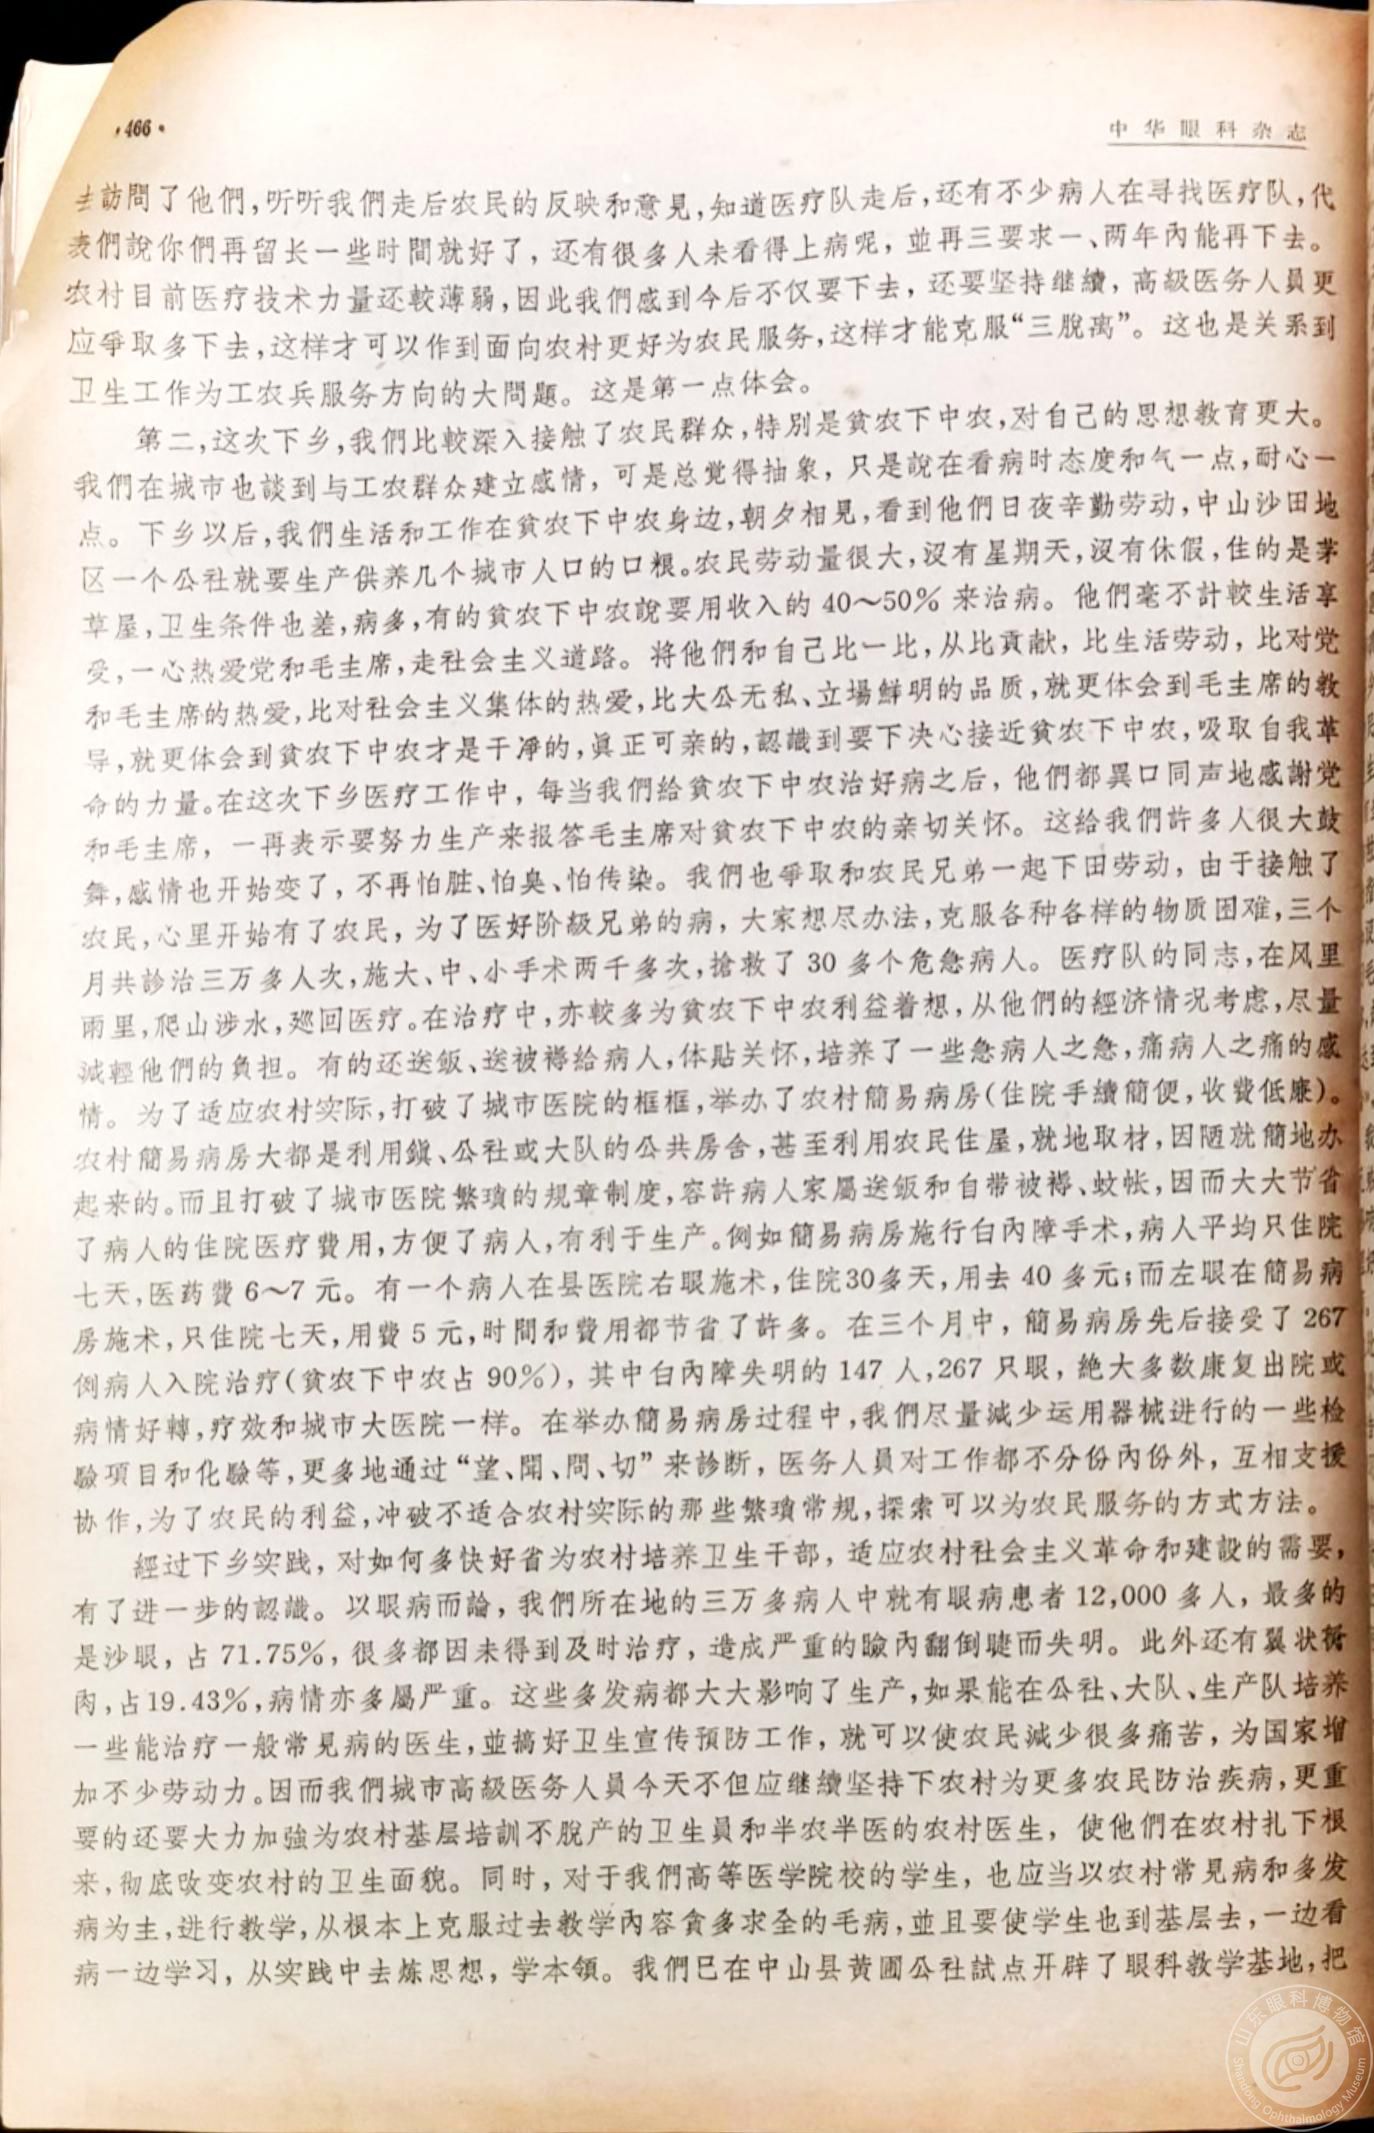 ·466·
中华眼科杂志
去訪問了他們，听听我們走后农民的反映和意見，知道医疗队走后，还有不少病人在寻找医疗队，代
表們說你們再留长一些时間就好了，还有很多人未看得上病呢，並再三要求一、两年內能再下去。
农村目前医疗技术力量还較薄弱，因此我們感到今后不仅要下去，还要坚持继續，高級医务人員更
应爭取多下去，这样才可以作到面向农村更好为农民服务，这样才能克服“三脫离”。这也是关系到
卫生工作为工农兵服务方向的大問題。这是第一点体会。
第二，这次下乡，我們比較深入接触了农民群众，特別是貧农下中农，对自己的思想教育更大。
我們在城市也談到与工农群众建立感情，可是总觉得抽象，只是說在看病时态度和气一点，耐心一
点。下乡以后，我們生活和工作在貧农下中农身边，朝夕相見，看到他們日夜辛勤劳动，中山沙田地
区一个公社就要生产供养几个城市人口的口粮。农民劳动量很大，沒有星期天，沒有休假，住的是茅
草屋，卫生条件也差，病多，有的貧农下中农說要用收入的 40～50% 来治病。他們毫不計較生活享
受，一心热爱党和毛主席，走社会主义道路。将他們和自己比一比，从比貢献，比生活劳动，比对党
和毛主席的热爱，比对社会主义集体的热爱，比大公无私、立場鮮明的品质，就更体会到毛主席的教
导，就更体会到貧农下中农才是干凈的，眞正可亲的，認識到要下决心接近貧农下中农，吸取自我革
命的力量。在这次下乡医疗工作中，每当我們給貧农下中农治好病之后，他們都異口同声地感謝党
和毛主席，一再表示要努力生产来报答毛主席对貧农下中农的亲切关怀。这给我們許多人很大鼓
舞，感情也开始变了，不再怕脏、怕臭、怕传染。我們也爭取和农民兄弟一起下田劳动，由于接触了
农民，心里开始有了农民，为了医好阶級兄弟的病，大家想尽办法，克服各种各样的物质困难，三个
月共診治三万多人次，施大、中、小手术两千多次，搶救了 30 多个危急病人。医疗队的同志，在风里
雨里，爬山涉水，廵回医疗。在治疗中，亦較多为貧农下中农利益着想，从他們的經济情况考虑，尽量
減輕他們的負担。有的还送飯、送被褥給病人，体貼关怀，培养了一些急病人之急，痛病人之痛的感
情。为了适应农村实际，打破了城市医院的框框，举办了农村簡易病房（住院手續簡便，收費低廉）。
农村簡易病房大都是利用鎭、公社或大队的公共房舍，甚至利用农民住屋，就地取材，因陋就簡地办
起来的。而且打破了城市医院繁瑣的規章制度，容許病人家屬送飯和自带被褥、蚊帐，因而大大节省
了病人的住院医疗費用，方便了病人，有利于生产。例如簡易病房施行白內障手术，病人平均只住院
七天，医药費 6～7 元。有一个病人在县医院右眼施术，住院30多天，用去 40 多元；而左眼在簡易病
房施术，只住院七天，用費 5 元，时間和費用都节省了許多。在三个月中，簡易病房先后接受了 267
例病人入院治疗（貧农下中农占 90%），其中白內障失明的 147 人，267 只眼，絶大多数康复出院或
病情好轉，疗效和城市大医院一样。在举办簡易病房过程中，我們尽量減少运用器械进行的一些检
驗項目和化驗等，更多地通过“望、聞、問、切”来診断，医务人員对工作都不分份內份外，互相支援
协作，为了农民的利益，冲破不适合农村实际的那些繁瑣常規，探索可以为农民服务的方式方法。
經过下乡实践，对如何多快好省为农村培养卫生干部，适应农村社会主义革命和建設的需要，
有了进一步的認識。以眼病而論，我們所在地的三万多病人中就有眼病患者 12,000 多人，最多的
是沙眼，占 71.75%，很多都因未得到及时治疗，造成严重的瞼內翻倒睫而失明。此外还有翼状胬
肉，占19.43%，病情亦多屬严重。这些多发病都大大影响了生产，如果能在公社、大队、生产队培养
一些能治疗一般常見病的医生，並搞好卫生宣传预防工作，就可以使农民減少很多痛苦，为国家增
加不少劳动力。因而我們城市高級医务人員今天不但应继續坚持下农村为更多农民防治疾病，更重
要的还要大力加強为农村基层培訓不脫产的卫生員和半农半医的农村医生，使他們在农村扎下根
来，彻底改变农村的卫生面貌。同时，对于我們高等医学院校的学生，也应当以农村常見病和多发
病为主，进行教学，从根本上克服过去教学內容貪多求全的毛病，並且要使学生也到基层去，一边看
病一边学习，从实践中去炼思想，学本領。我們已在中山县黄圃公社試点开辟了眼科教学基地，把
山东眼科博物馆
Shandong Ophthalmology Museum